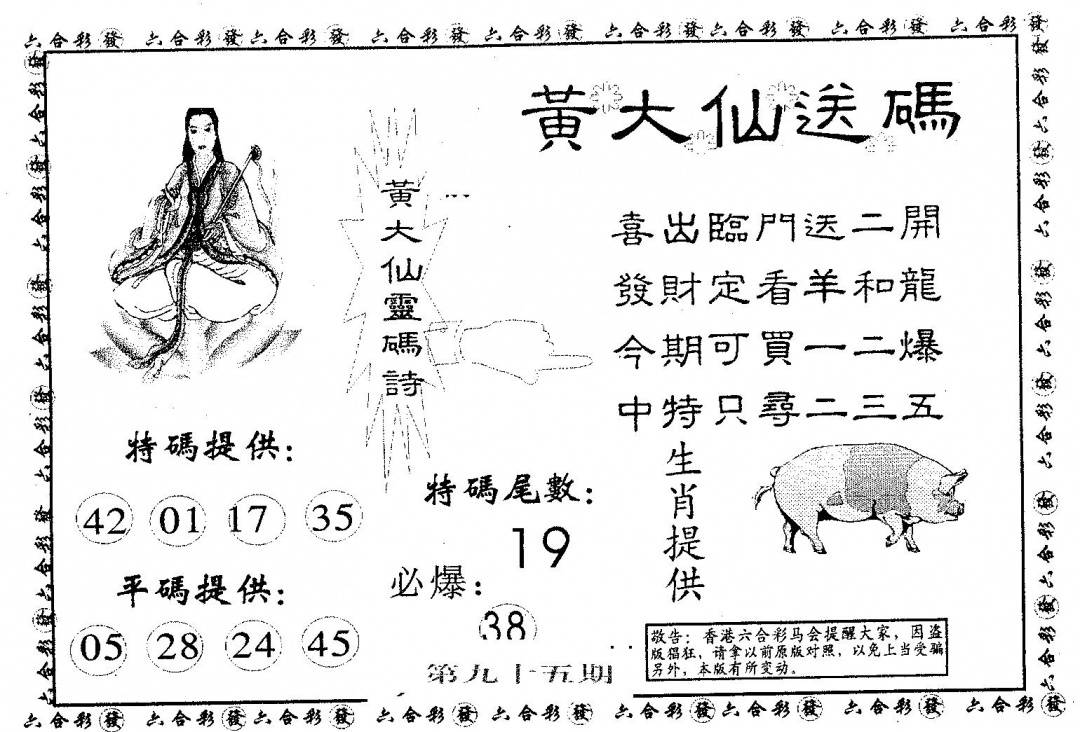 六合彩發 六合彩發六合彩發 六合彩發 六合彩發 六合彩發六合彩發 六合彩發 六合彩發
黃大仙送碼
黃大仙靈碼詩
喜出臨門送二開
發財定看羊和龍
今期可買一二爆
中特只尋二三五
特碼提供：
42 01 17 35
平碼提供：
05 28 24 45
特碼尾數：
19
必爆：
38
第九十五期
生肖提供
敬告：香港六合彩马会提醒大家，因盗
版猖狂，请拿以前原版对照，以免上当受骗
另外，本版有所变动。
六合彩發 六合彩發六合彩發 六合彩發 六合彩發 六合彩發六合彩發 六合彩發 六合彩發